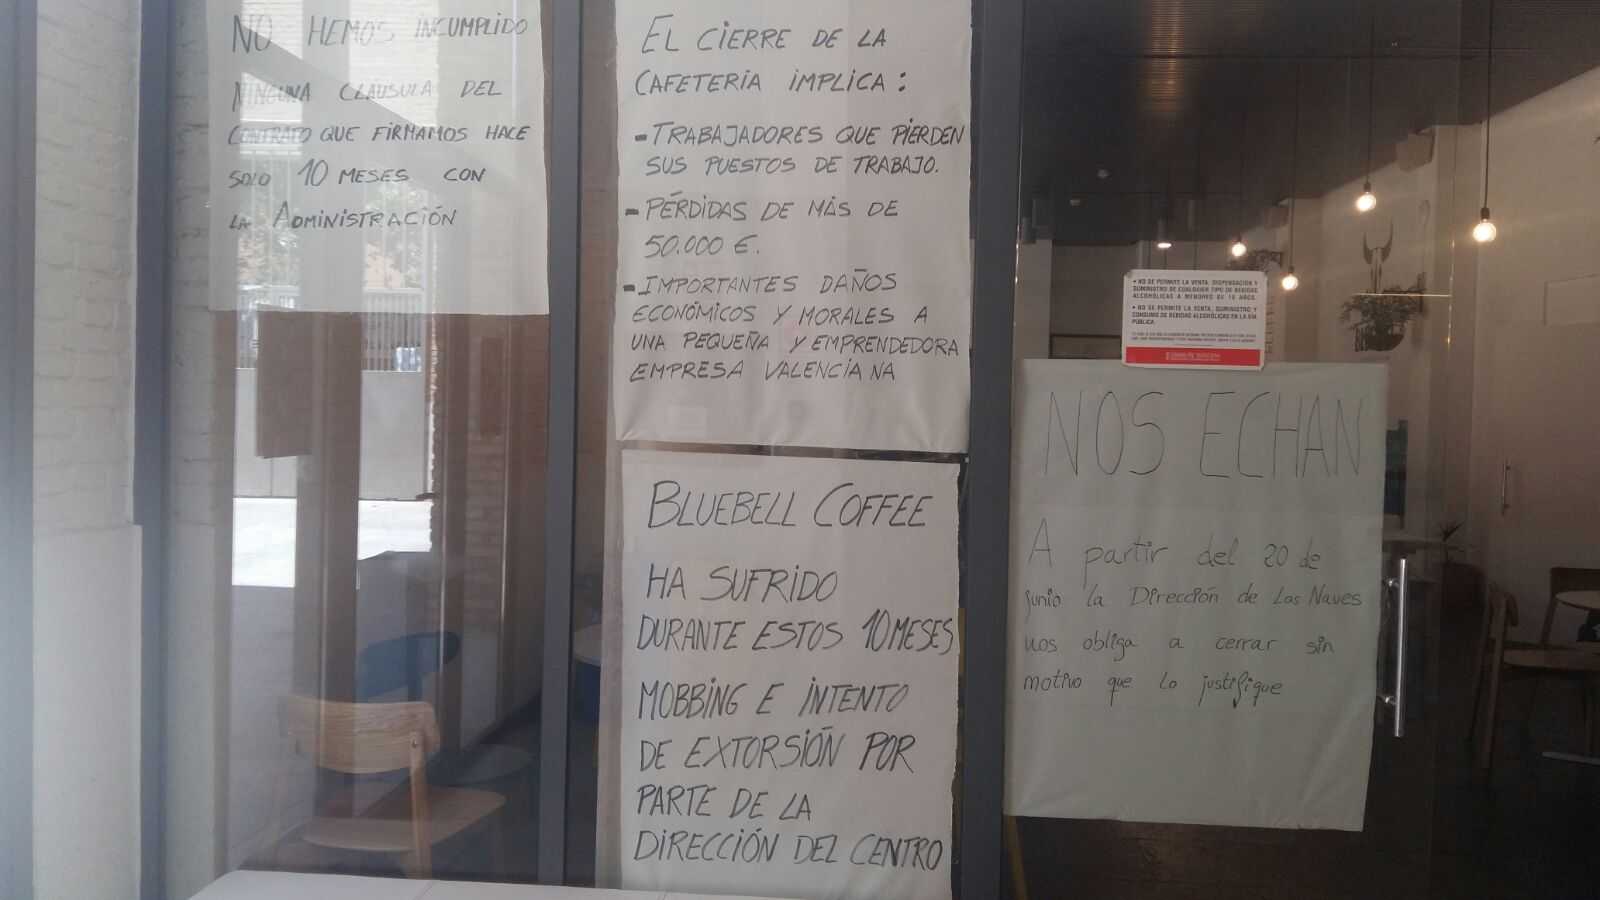 NO HEMOS INCUMPLIDO
NINGUNA CLÁUSULA DEL
CONTRATO QUE FIRMAMOS HACE
SOLO 10 MESES CON
LA ADMINISTRACIÓN
EL CIERRE DE LA
CAFETERIA IMPLICA:
- TRABAJADORES QUE PIERDEN
SUS PUESTOS DE TRABAJO.
- PÉRDIDAS DE MÁS DE
50.000 €.
- IMPORTANTES DAÑOS
ECONÓMICOS Y MORALES A
UNA PEQUEÑA Y EMPRENDEDORA
EMPRESA VALENCIANA
BLUEBELL COFFEE
HA SUFRIDO
DURANTE ESTOS 10 MESES
MOBBING E INTENTO
DE EXTORSIÓN POR
PARTE DE LA
DIRECCIÓN DEL CENTRO
• NO SE PERMITE LA VENTA, DISPENSACIÓN Y
SUMINISTRO DE CUALQUIER TIPO DE BEBIDAS
ALCOHÓLICAS A MENORES DE 18 AÑOS.
• NO SE PERMITE LA VENTA, SUMINISTRO Y
CONSUMO DE BEBIDAS ALCOHÓLICAS EN LA VÍA
PÚBLICA.
NOS ECHAN
A partir del 20 de
junio la Dirección de Las Naves
nos obliga a cerrar sin
motivo que lo justifique